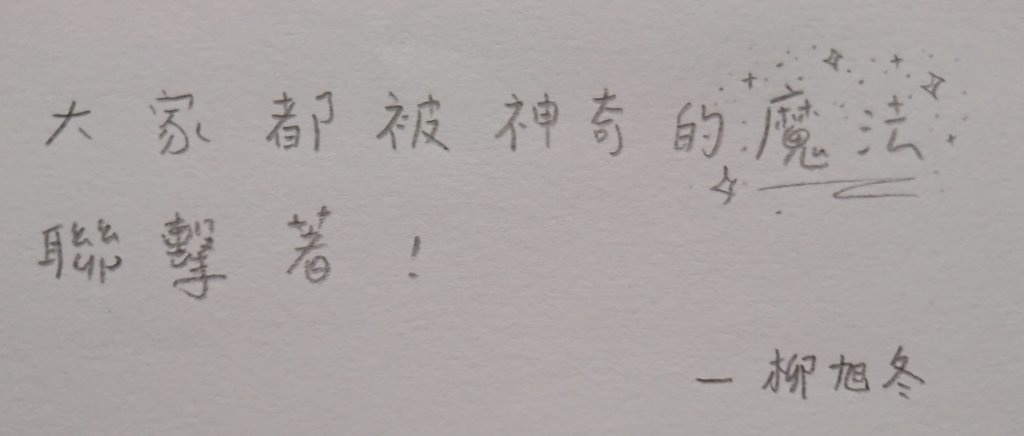 大家都被神奇的魔法
聯擊著！
—柳旭冬